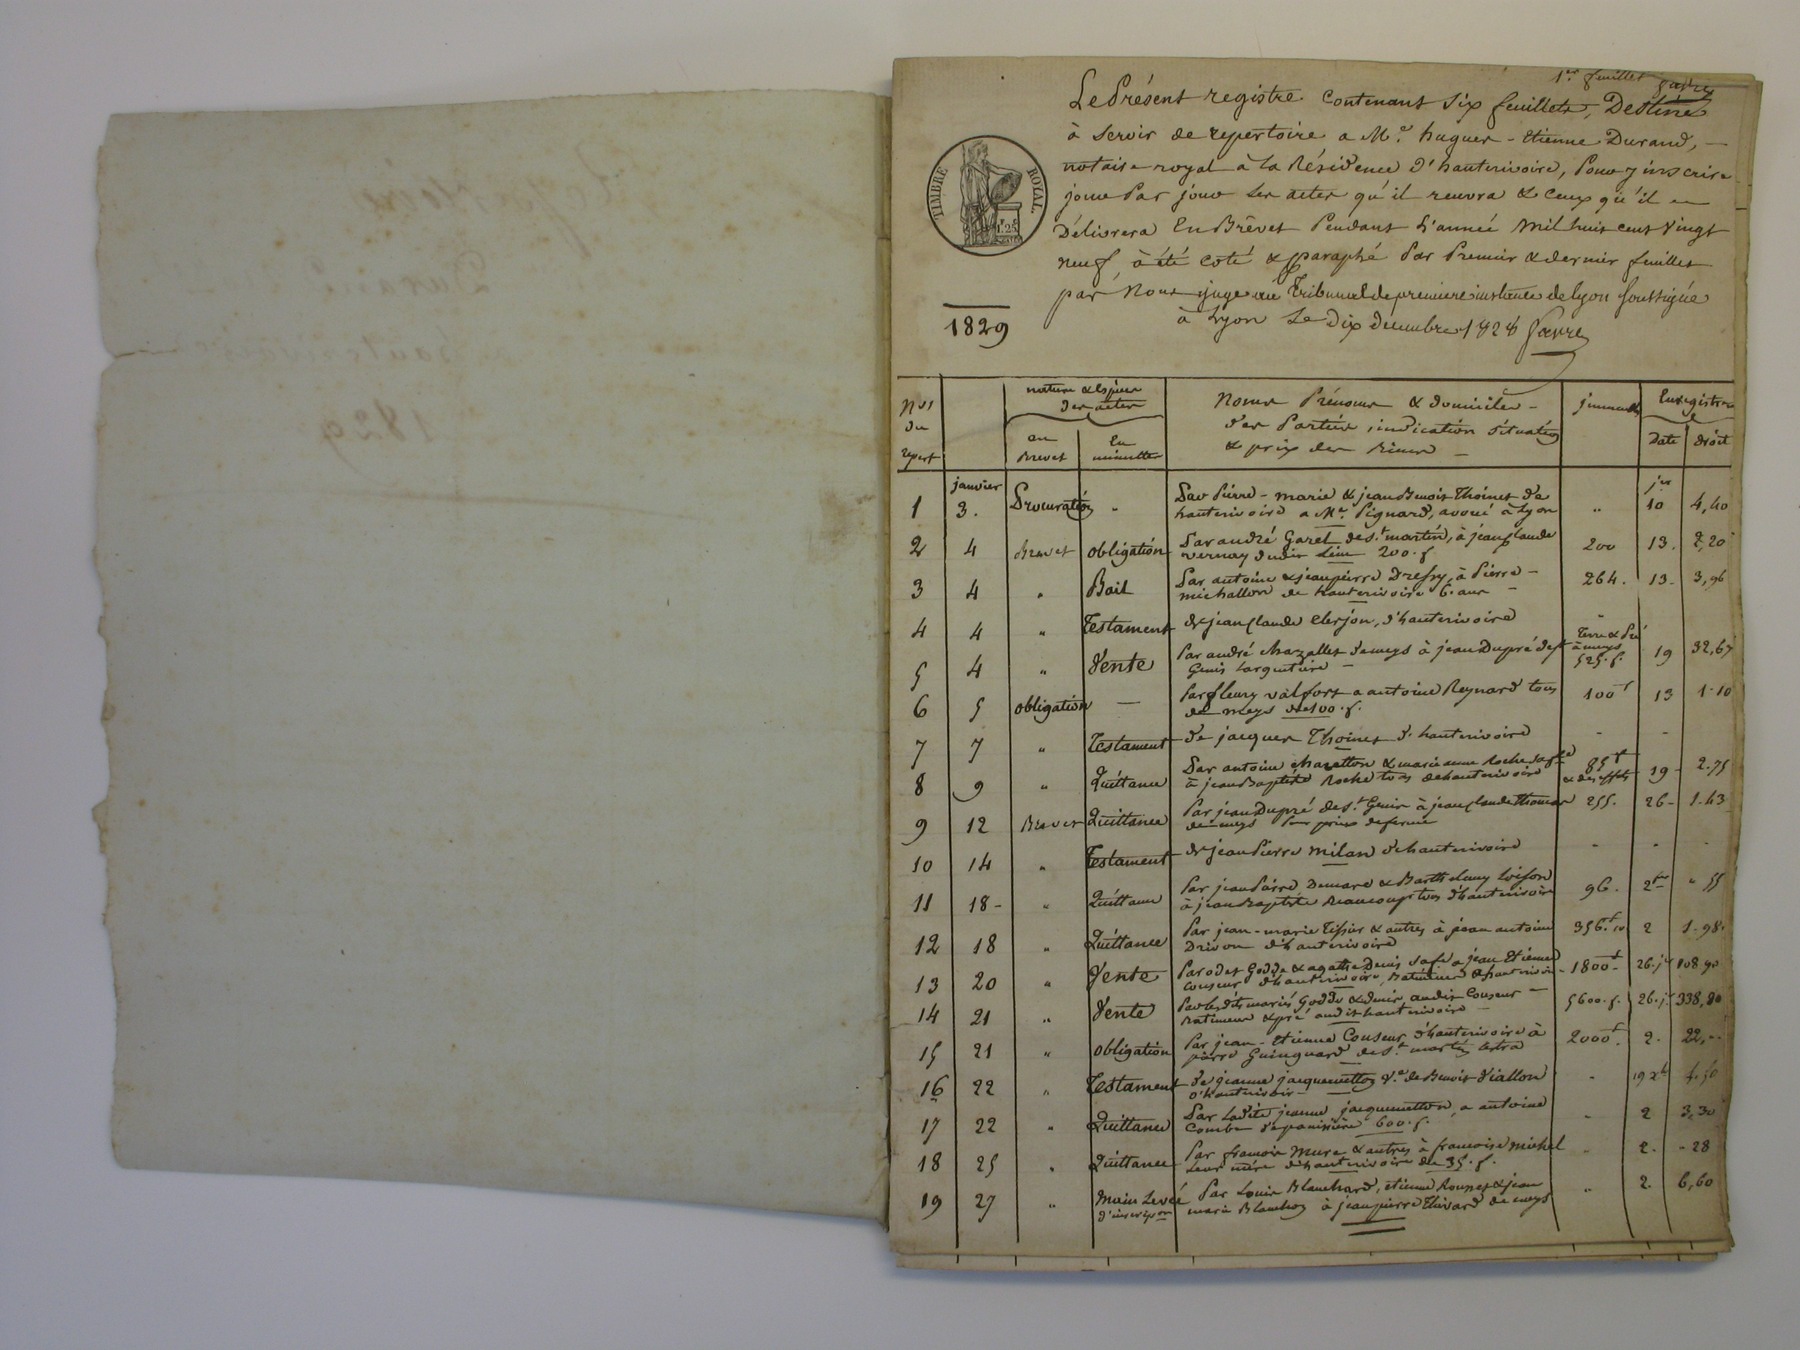 1er feuillet
favre
Le Présent registre contenant six feuillets, Destiné
à servir de repertoire a Me. hugues - Etienne Durand, —
notaire royal à la Résidence d'hauterivoire, Pour y inscrire
jour Par jour les actes qu'il recevra & ceux qu'il en
Délivrera En Brévet Pendant L'année mil huit cent vingt
neuf, à été coté & paraphé Par Premier & dernier feuillet
par Nous juge au Tribunal de premiere instance de lyon soussigné
à Lyon Le Dix décembre 1828 favre
TIMBRE ROYAL.
1.25
1829
Nos du repert
nature & espèce des actes
en Brevet
En minutte
Noms Prénoms & domiciles -
des Parties, indication situation
& prix des Biens -
Enregistre
Date
droit
1 janvier 3. Procuration " Par Pierre - marie & jean Benoit Thoinet de " jer 10 4,40
hauterivoire a Me. Pignard, avoué à Lyon
2 4 Brevet obligation Par andré Garel de st. martin, à jean claude 200 13. 2,20
vernay dudit lieu 200. f
3 4 " Bail Par antoine & jean pierre Dressy, à Pierre - 264. 13- 3,96
michallon de hauterivoire 6. ans -
4 4 " Testament de jean Claude Clerjon, d'hauterivoire "
5 4 " Vente Par andré chazallet de meys à jean Dupré de st Terre & Pré à meys 525. f. 19 32,67
Genis Largentière -
6 5 obligation — Par fleury valfort a antoine Reynard tous 100 f 13 1.10
de meys de 100. f.
7 7 " Testament de jacques Thoinet d'hauterivoire - -
8 9 " Quittance Par antoine charetton & marie anne Roche sa fe 85 f & des effets 19- 2.75
à jean Baptiste Roche tous de hauterivoire
9 12 Brevet Quittance Par jean Dupré de st. Genis à jean claude thomas 255. 26- 1.43
de meys Pour prix de ferme
10 14 " Testament de jean Pierre milan d'hauterivoire - - -
11 18- " Quittance Par jean Pierre Demare & Barthelemy loison 96. 2 " 55
à jean Baptiste Beaucoup tous d'hauterivoire
12 18 " Quittance Par jean-marie Tissier & autres à jean antoine 356. f 10 2 1.98.
Drivon d'hauterivoire
13 20 " Vente Par odet Godde & agathe Denis sa fe a jean Etienne 1800 f 26. jr 108,90
Couseur d'hauterivoire, Batiment d'hauterivoire
14 21 " Vente Par lesdits mariés Godde & denis audit Couseur - 5600. f. 26. jr 338,80
Batimens & pré audit hauterivoire
15 21 " obligation Par jean-Etienne Couseur d'hauterivoire à 2000 f. 2. 22,--
pierre Guinguard de st. martin lestra
16 22 " Testament de jeanne jacquemetton ve. de Benoit Viallon -
d'hauterivoire
17 22 " Quittance Par Ladite jeanne jacquemetton, a antoine - 2 3,30
Combe de panissière 600. f.
18 25 " Quittance Par francois Mure & autres à francoise michel - 2. - 28
Leur mère d'hauterivoire de 35. f.
19 27 " main Levée d'inscripon Par Louis Blanchard, etienne Rousset & jean " 2. 6,60
marie Blanchon à jean pierre Thivard de meys